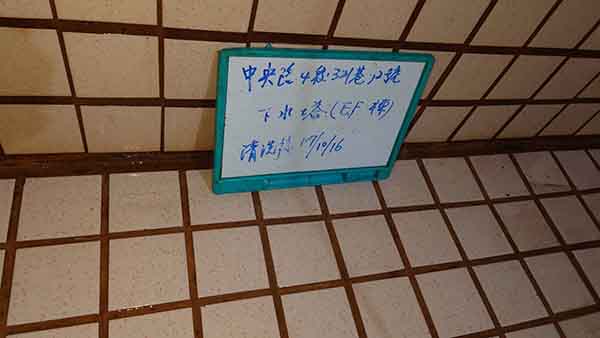 中央路4段321巷12號
下水塔(EF棟)
清洗後 17/10/16